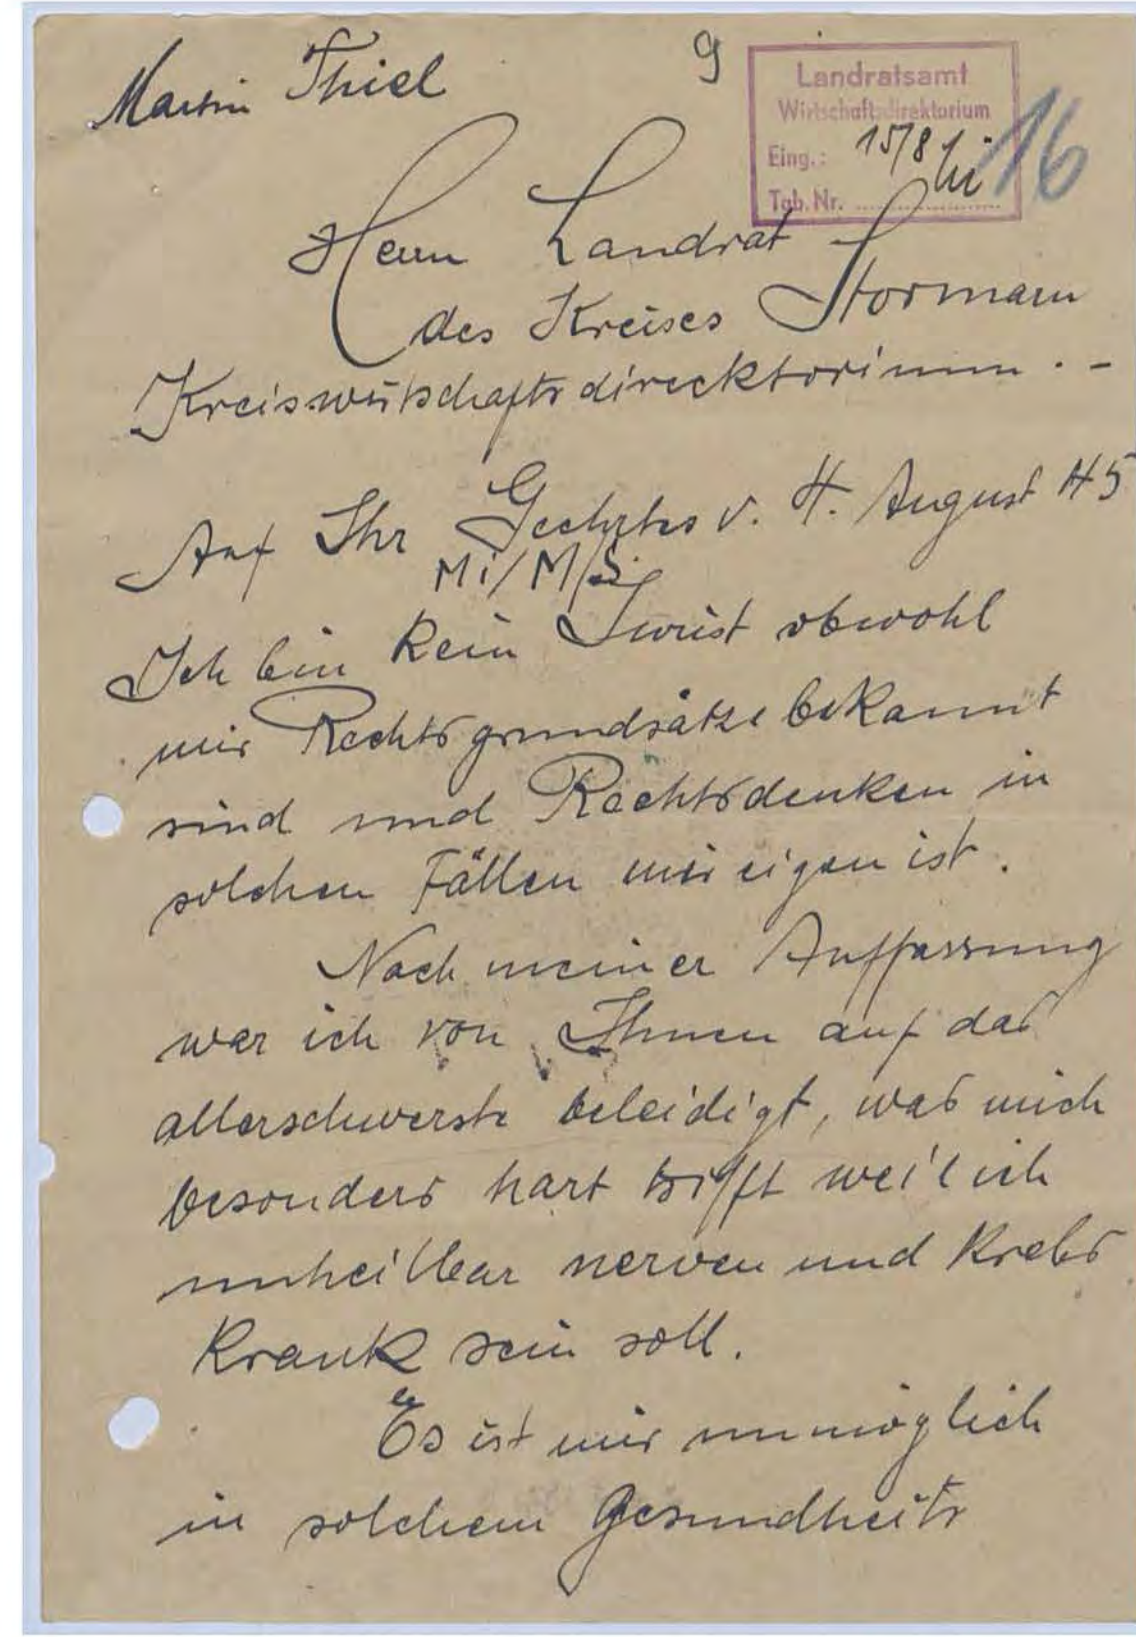 Martin Thiel
9
Landratsamt
Wirtschaftsdirektorium
Eing.: 15/8
Tgb. Nr.
16
Herrn Landrat
des Kreises Stormarn
Kreiswirtschaftsdirecktorium . -
Auf Ihr Geehrtes v. 4. August 45
Mi/M/S.
Ich bin kein Jurist obwohl
mir Rechtsgrundsätze bekannt
sind und Rechtsdenken in
solchen Fällen mir eigen ist.
Nach meiner Auffassung
war ich von Ihnen auf das
allerschwerste beleidigt, was mich
besonders hart trifft weil ich
unheilbar nerven und Krebs
krank sein soll.
Es ist mir unmöglich
in solchem Gesundheits